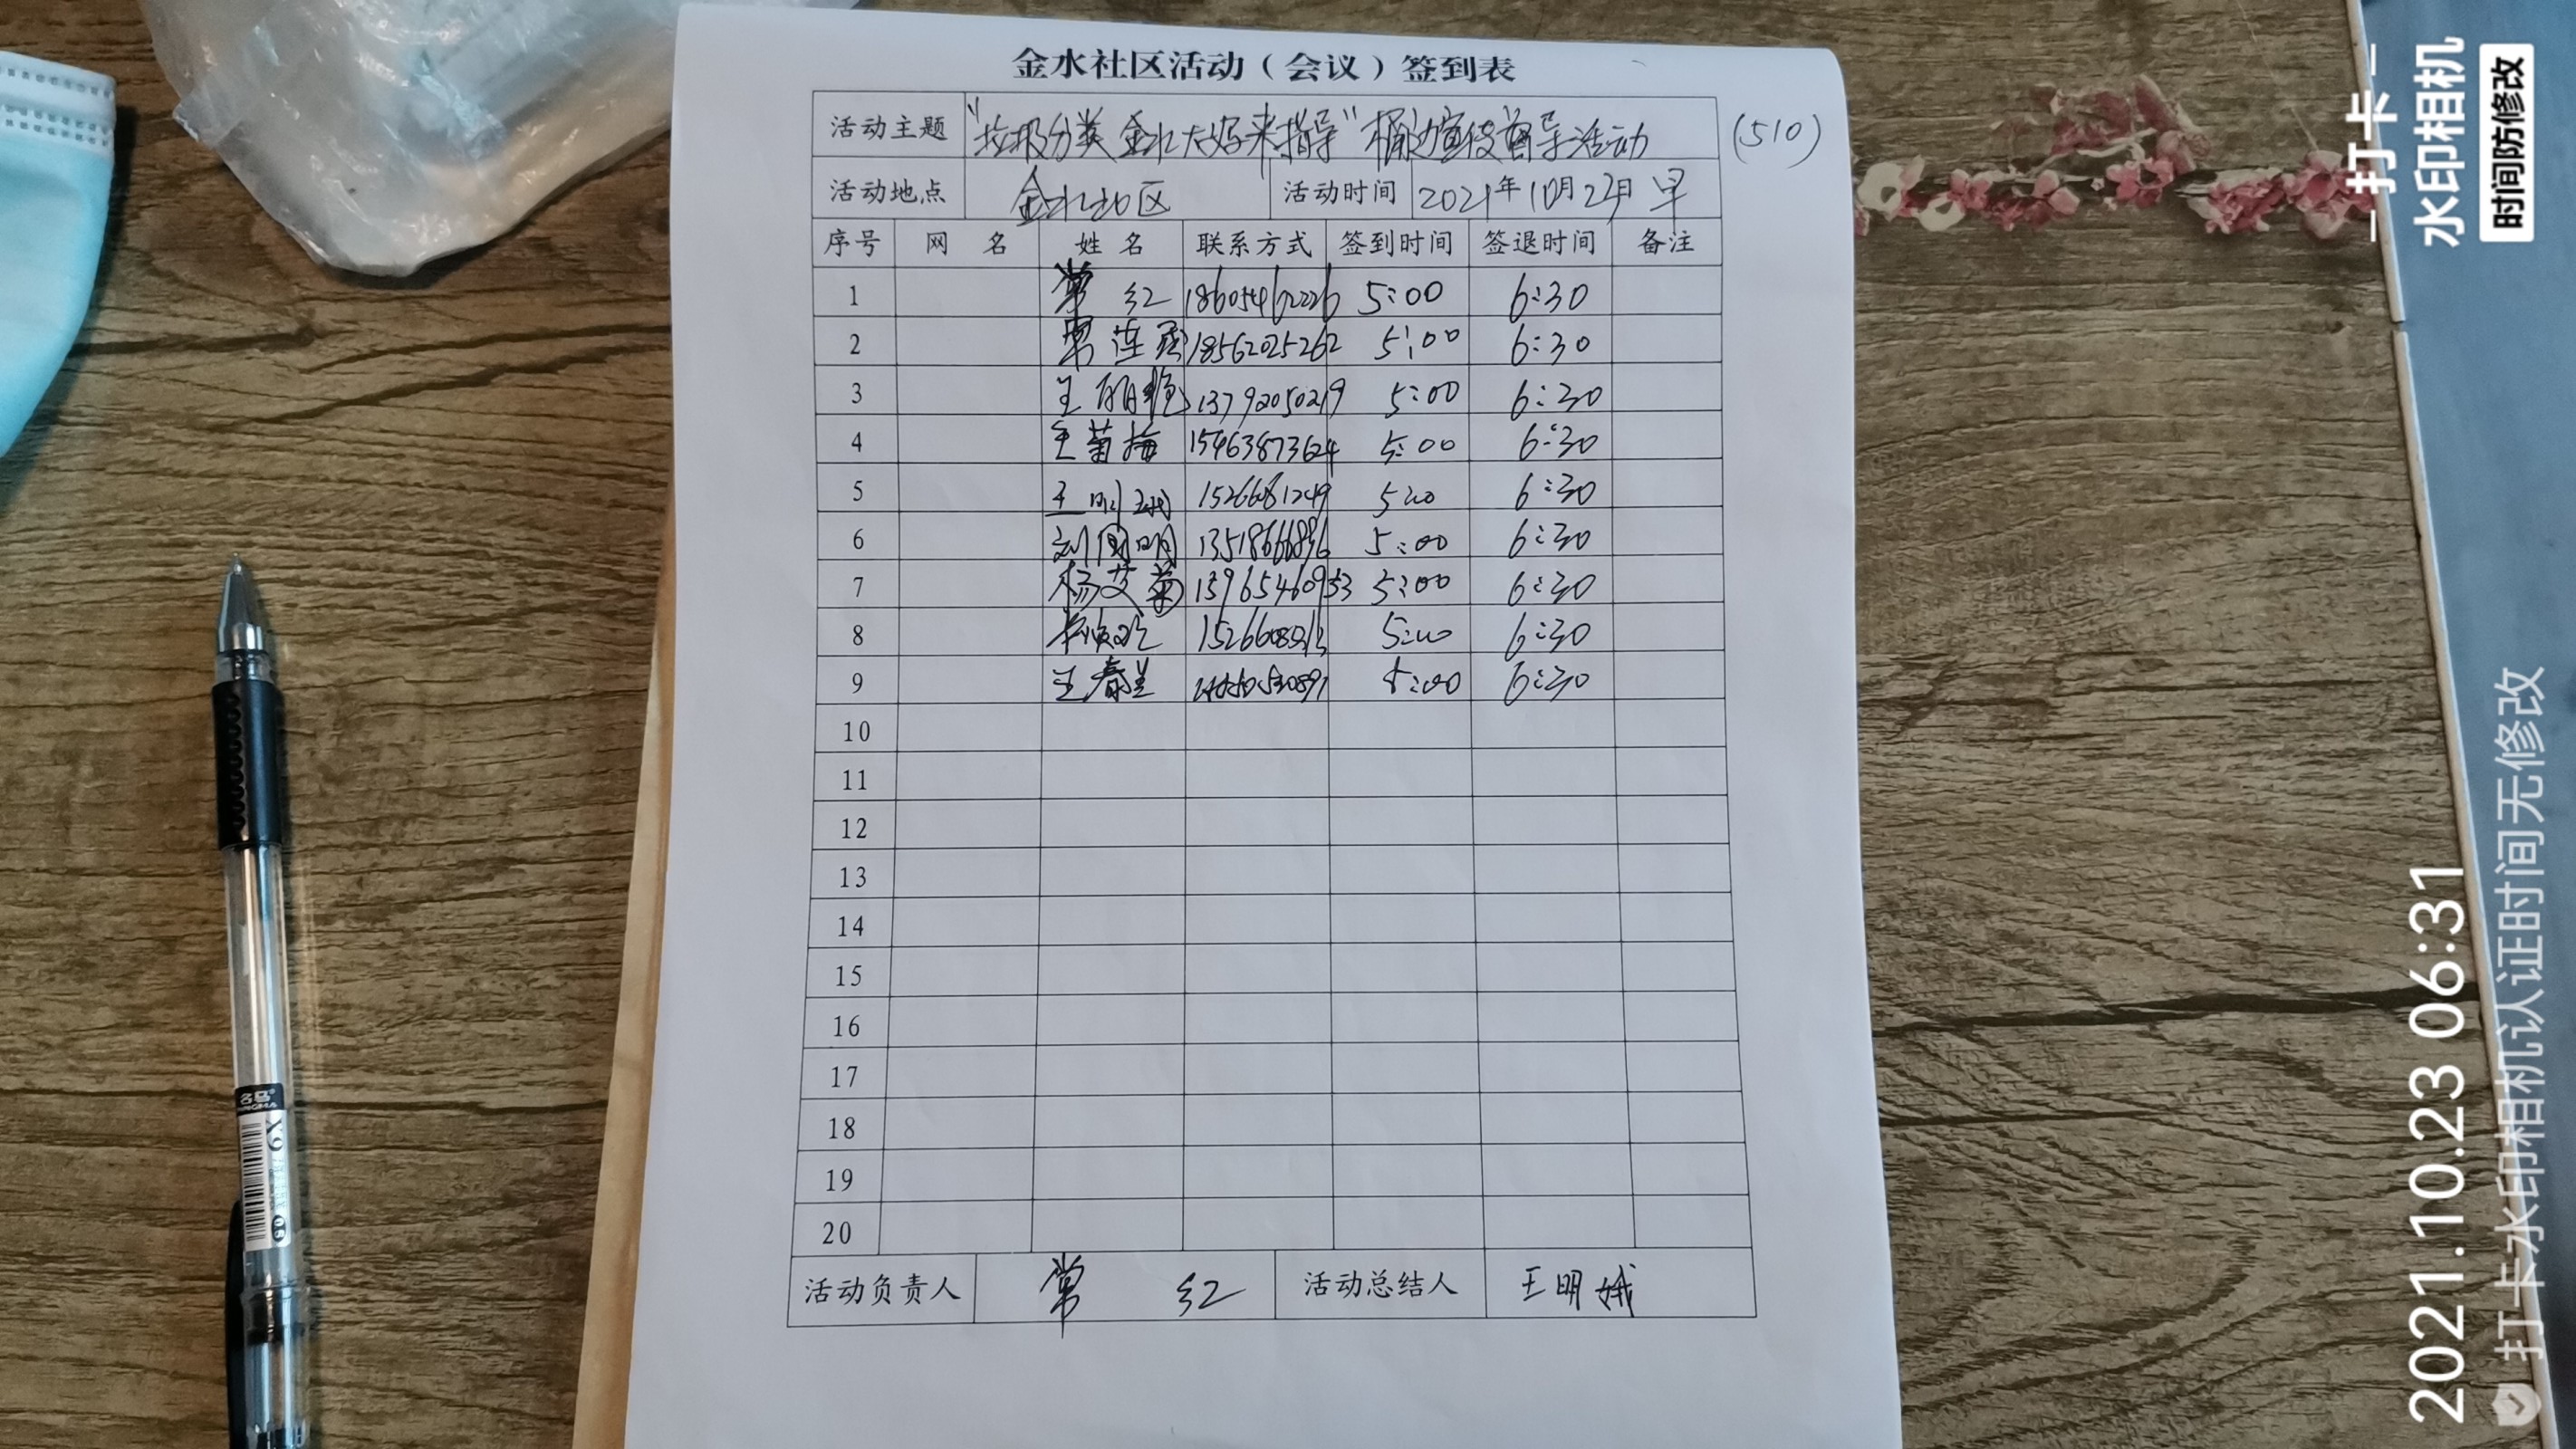 金水社区活动（会议）签到表
活动主题 "垃圾分类 金水大妈来指导"桶边宣传督导活动 (510)
活动地点 金水社区 活动时间 2021年10月23日 早
序号 网 名 姓 名 联系方式 签到时间 签退时间 备注
1 常 红 18605462226 5:00 6:30
2 常连 18562025262 5:00 6:30
3 王丽艳 13792050219 5:00 6:30
4 王菊梅 15463873624 5:00 6:30
5 王明娥 15266081249 5:00 6:30
6 刘国明 13518666896 5:00 6:30
7 杨艾菊 13965460953 5:00 6:30
8 5:00 6:30
9 王春兰 5:00 6:30
10
11
12
13
14
15
16
17
18
19
20
活动负责人 常 红 活动总结人 王明娥
打卡
水印相机
时间防修改
2021.10.23 06:31
打卡水印相机认证时间无修改
名马
X9
0.5